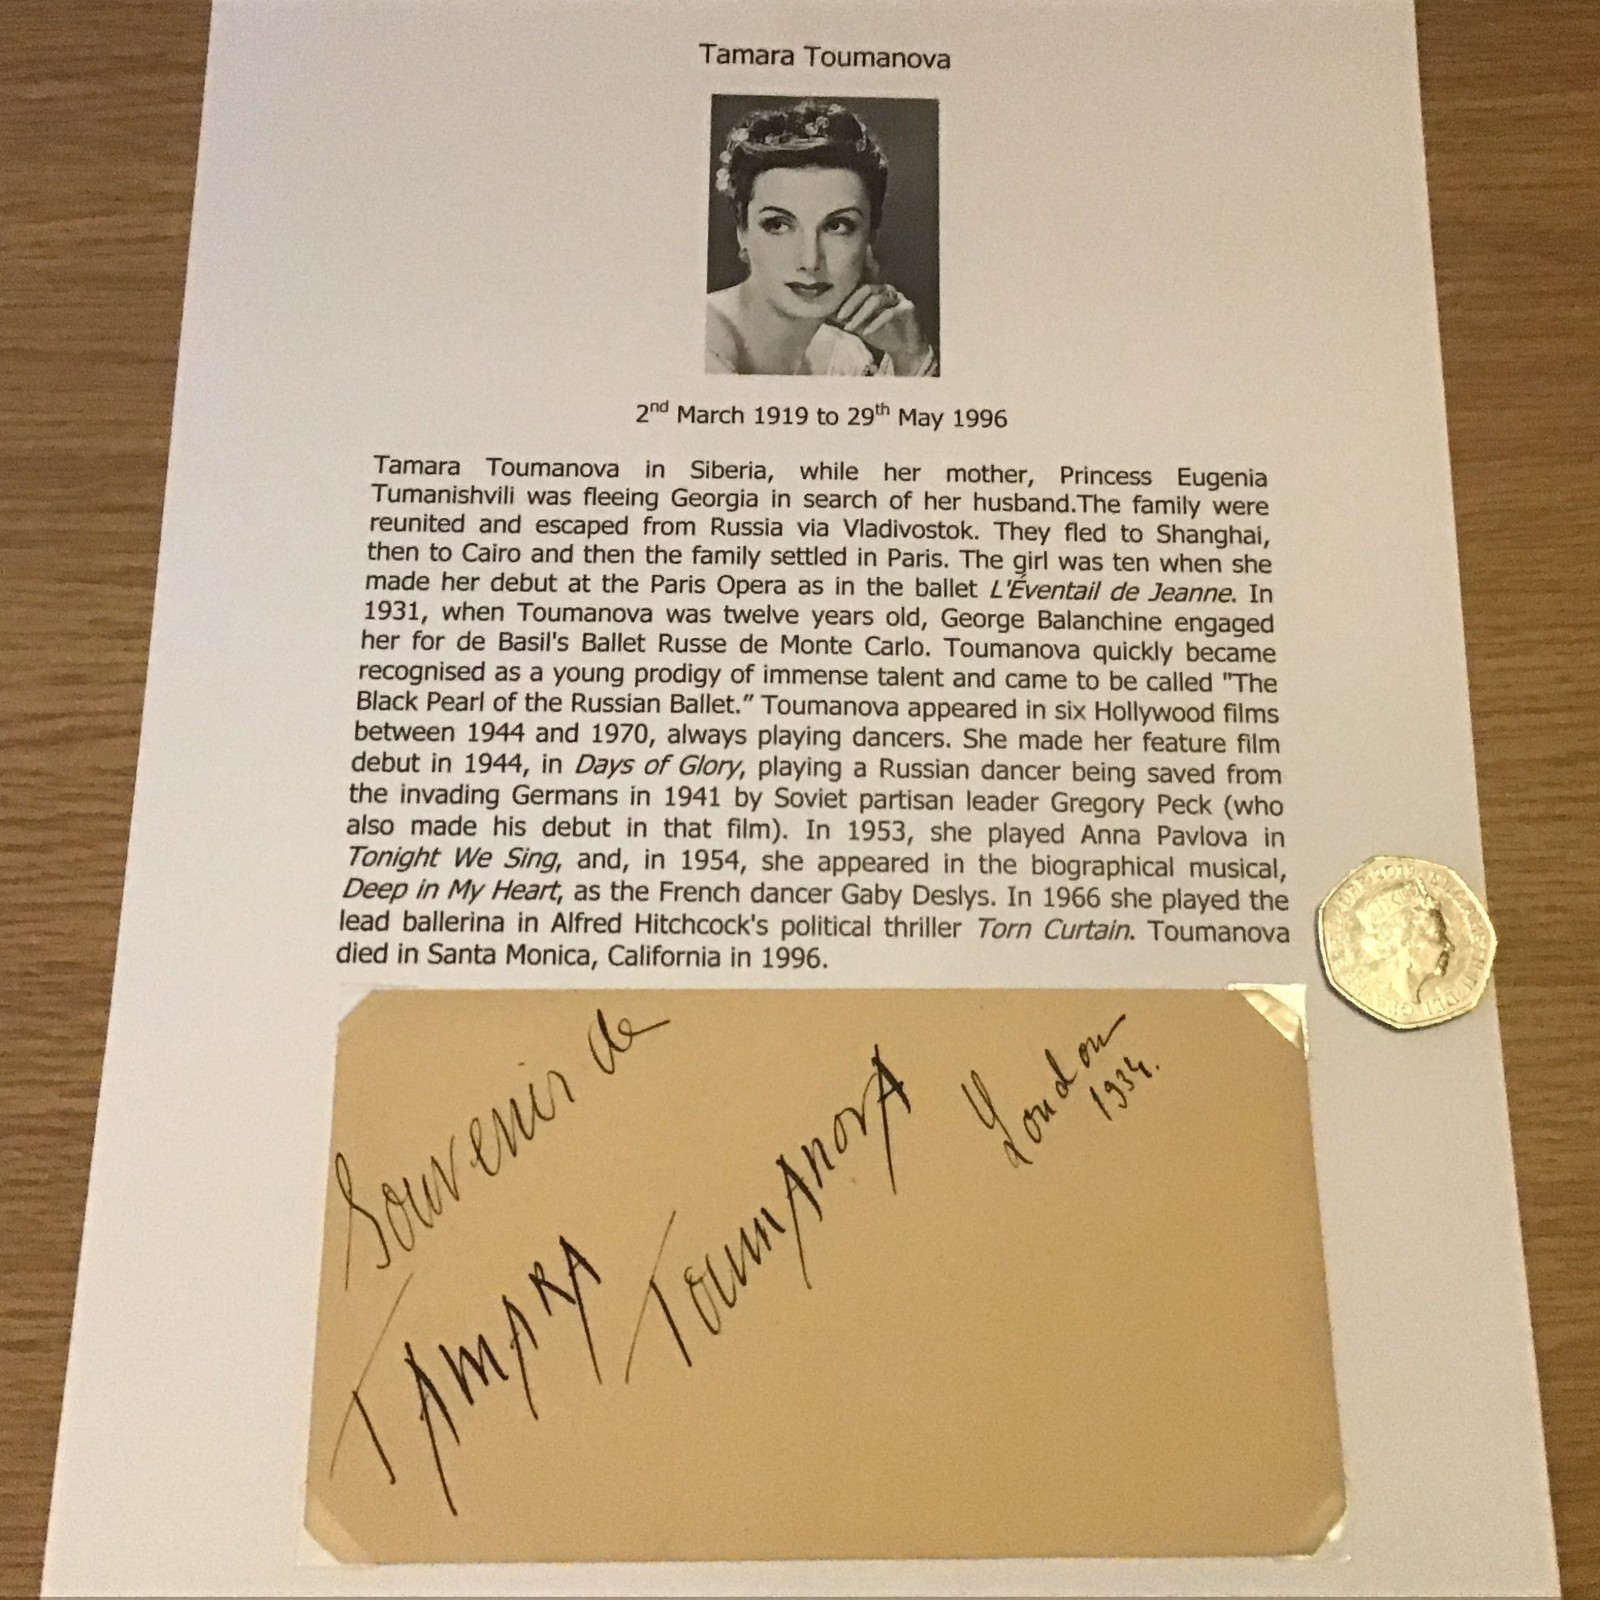 Tamara Toumanova
2nd March 1919 to 29th May 1996
Tamara Toumanova in Siberia, while her mother, Princess Eugenia
Tumanishvili was fleeing Georgia in search of her husband.The family were
reunited and escaped from Russia via Vladivostok. They fled to Shanghai,
then to Cairo and then the family settled in Paris. The girl was ten when she
made her debut at the Paris Opera as in the ballet L'Éventail de Jeanne. In
1931, when Toumanova was twelve years old, George Balanchine engaged
her for de Basil's Ballet Russe de Monte Carlo. Toumanova quickly became
recognised as a young prodigy of immense talent and came to be called "The
Black Pearl of the Russian Ballet.” Toumanova appeared in six Hollywood films
between 1944 and 1970, always playing dancers. She made her feature film
debut in 1944, in Days of Glory, playing a Russian dancer being saved from
the invading Germans in 1941 by Soviet partisan leader Gregory Peck (who
also made his debut in that film). In 1953, she played Anna Pavlova in
Tonight We Sing, and, in 1954, she appeared in the biographical musical,
Deep in My Heart, as the French dancer Gaby Deslys. In 1966 she played the
lead ballerina in Alfred Hitchcock's political thriller Torn Curtain. Toumanova
died in Santa Monica, California in 1996.
Souvenir de
TAMARA ToumAnovA
London
1934.